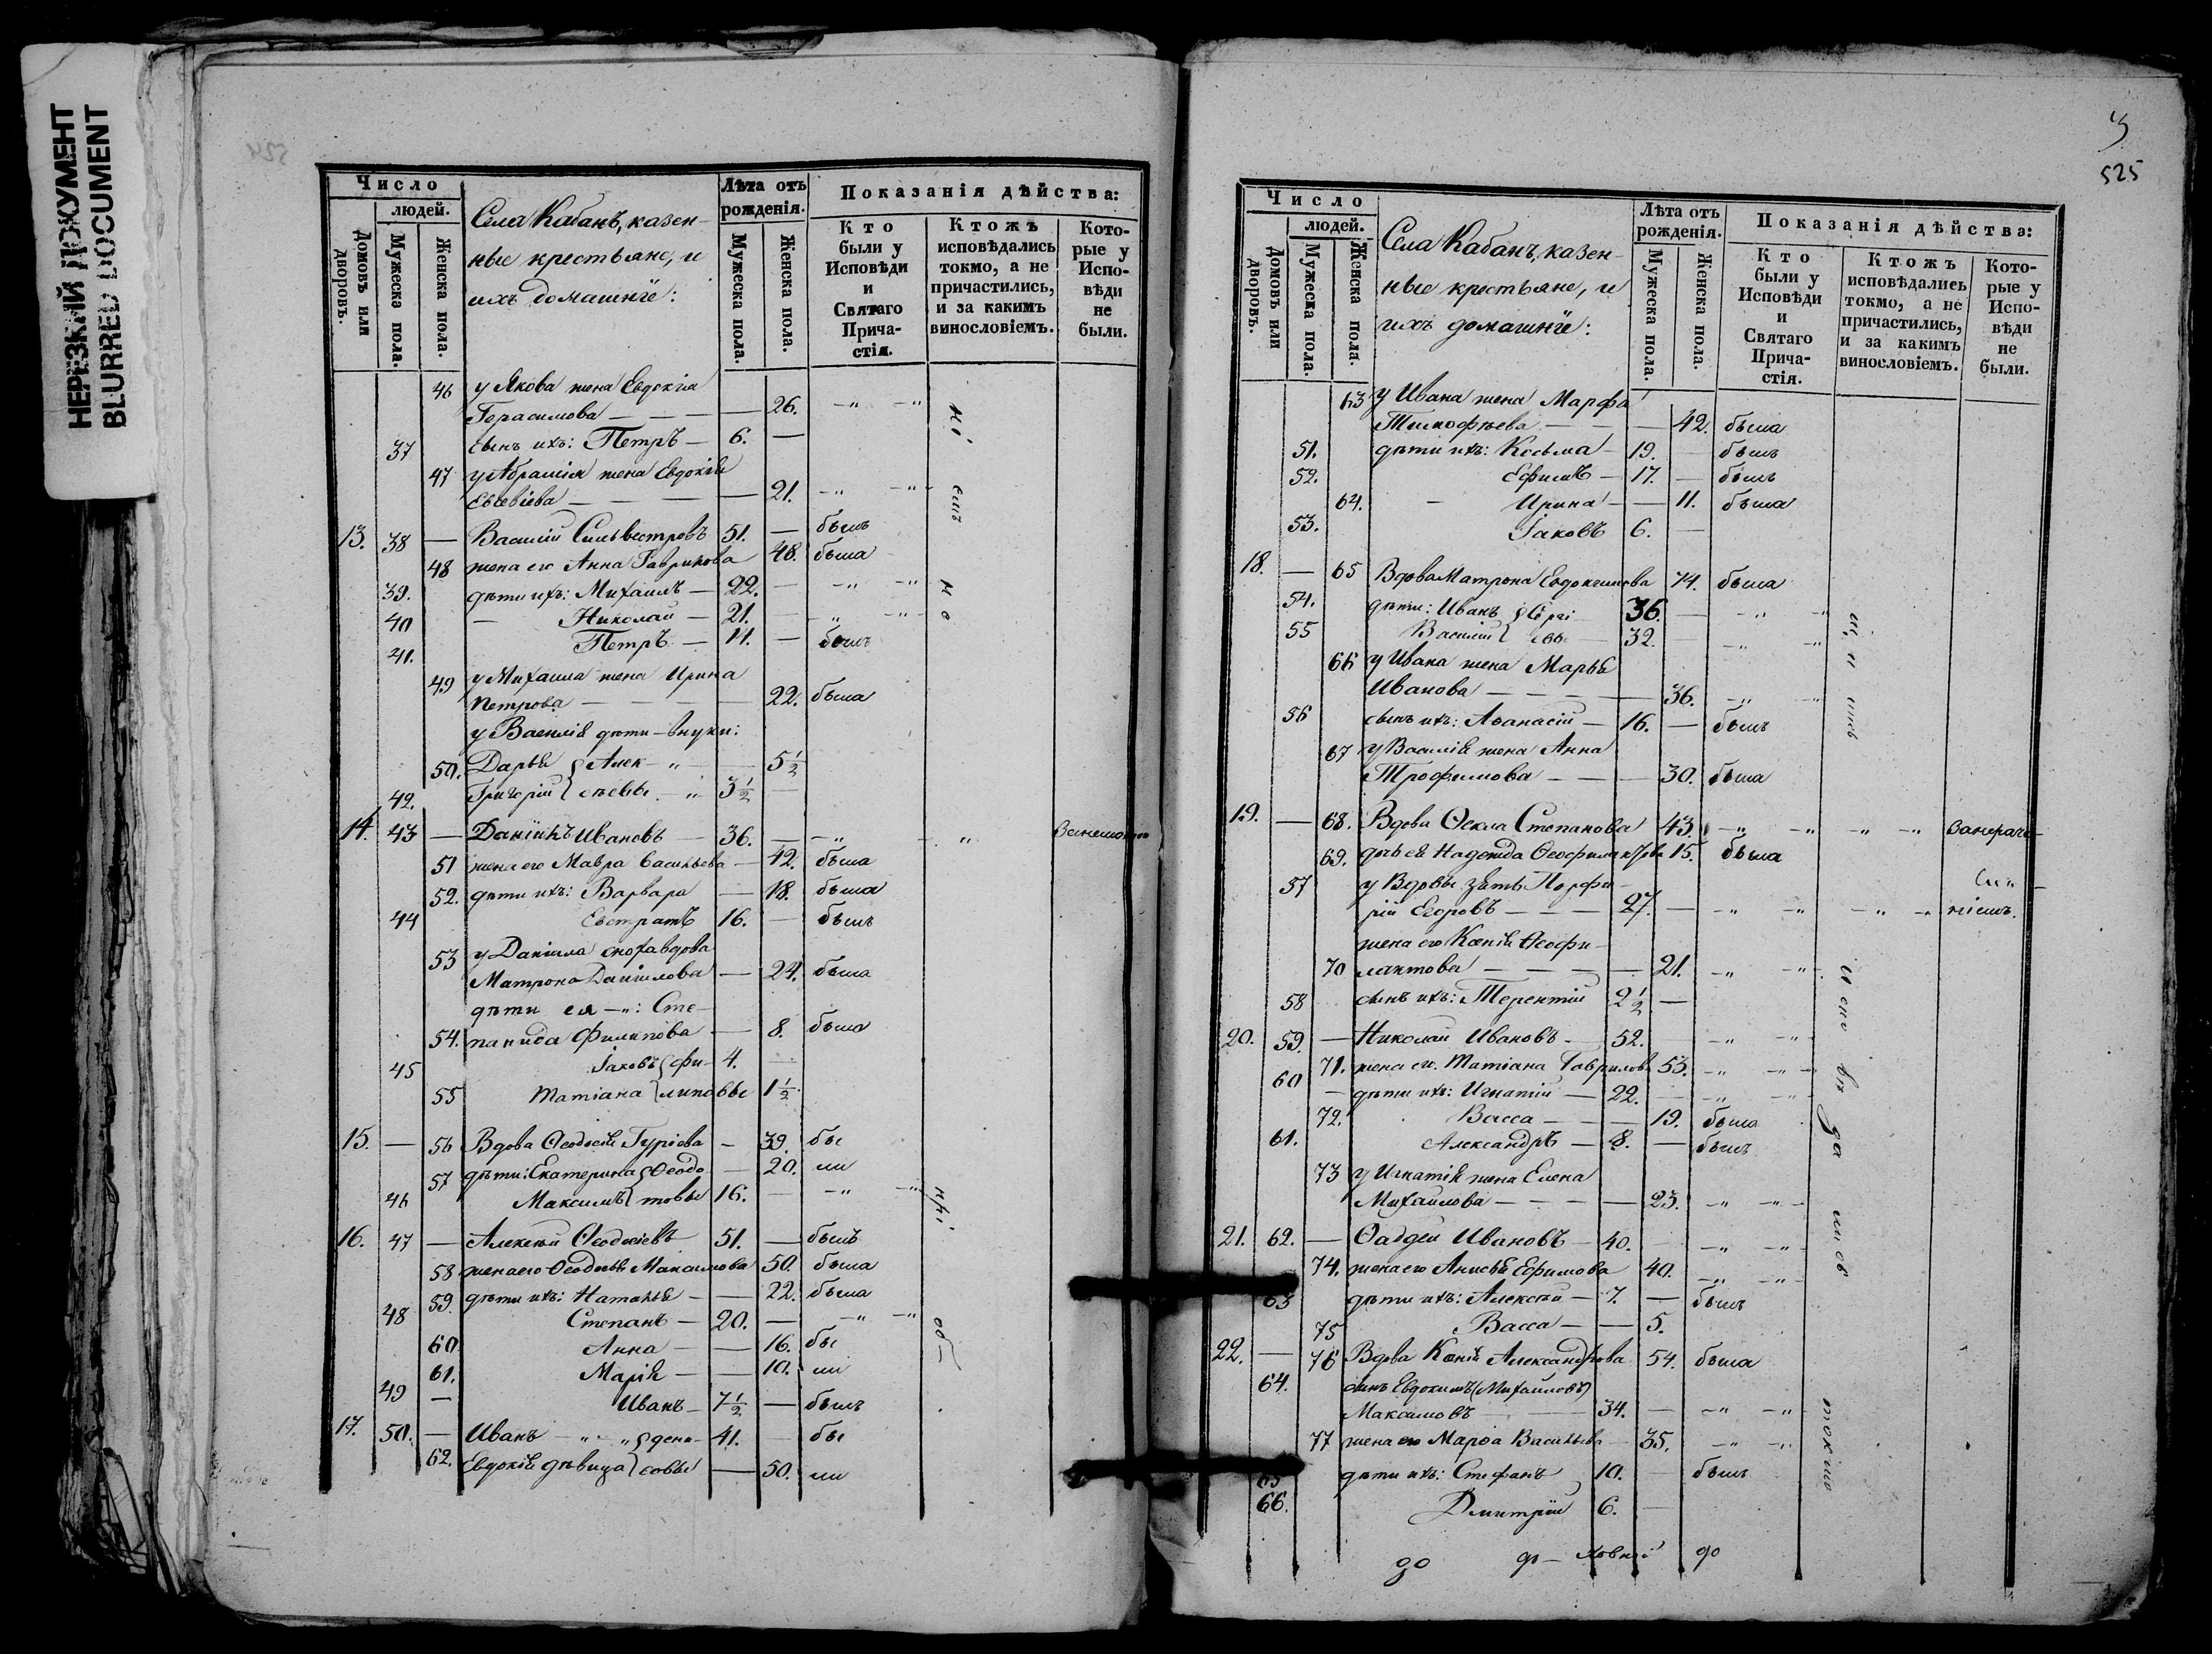 НЕРЕЗКИЙ ДОКУМЕНТ
BLURRED DOCUMENT
Число
людей.
Домовъ или дворовъ.
Мужеска пола.
Женска пола.
Села Кабанъ, казен-
ные крестьяне, и
ихъ домашнїе:
Лѣта отъ рожденія.
Мужеска пола.
Женска пола.
Показанія дѣйства:
Кто были у Исповѣди и Святаго Прича- стія.
Ктожъ исповѣдались токмо, а не причастились, и за какимъ винословіемъ.
Кото- рые у Испо- вѣди не были.
46 у Якова жена Евдокія
Герасимова — — — — 26. —"— "
37 сынъ ихъ: Петръ — 6. —
47 у Абрамія жена Евдокія
Евсевіева — — — — 21. —"— "—
13. 38 — Василій Сильвестровъ 51. — былъ
48 жена его Анна Гаврилова 48. была
39. дѣти ихъ: Михаилъ — 22. — —"— "
40 — Николай — 21. — —"— "—
41. Петръ — 11. — былъ
49 у Михаила жена Ирина
Петрова — — — — 22. была
у Василія дѣти-внуки:
50. Дарья { Алек- " — 5½
42. Григорій { сѣевы — " 3½ —
14. 43 — Даніилъ Ивановъ — 36. — —"— — "
51 жена его Мавра Васильева — 42. была
52. дѣти ихъ: Варвара — 18. была
44 Евстратъ 16. — былъ
53 у Даніила сноха вдова
Матрона Даніилова — 24. была
дѣти ея —": Сте-
54. панида Филипова — 8. была
45 Іаковъ { фи- 4. —
55 Татіана { липовы 1½
15. — 56 Вдова Ѳеодосія Гуріева — 39. бы
57 дѣти: Екатерина { Ѳеодо — 20. ли
46 Максимъ { товы 16. — —"— "
16. 47 — Алексѣй Ѳеодосіевъ 51. — былъ
58 жена его Ѳеодосья Максимова 50. была
59. дѣти ихъ: Наталья — — 22. была
48 Степанъ — 20. — —"— "
60 Анна — — 16. бы
61. Марія — — 10. ли
49 — Иванъ — 7½ — былъ
17. 50. — Иванъ —"— " { дени- 41. — бы
62. Евдокія дѣвица { совы — 50. ли
525
Число
людей.
Домовъ или дворовъ.
Мужеска пола.
Женска пола.
Села Кабанъ, казен-
ные крестьяне, и
ихъ домашнїе:
Лѣта отъ рожденія.
Мужеска пола.
Женска пола.
Показанія дѣйства:
Кто были у Исповѣди и Святаго Прича- стія.
Ктожъ исповѣдались токмо, а не причастились, и за какимъ винословіемъ.
Кото- рые у Испо- вѣди не были.
63 у Ивана жена Марфа
Тимофѣева — — — 42. была
51. дѣти ихъ: Косьма — 19. — былъ
52. Ефимъ — 17. — былъ
64. — Ирина — — 11. была
53. Іаковъ 6. —
18. — 65 Вдова Матрона Евдокимова 74. была
54. дѣти: Иванъ { Сергі- 36. — —"— "
55 Василій { евы — 32. — —"— "
66 у Ивана жена Марья
Иванова — — — — 36. —"— "
56 сынъ ихъ: Аѳанасій — 16. — былъ
67 у Василія жена Анна
Трофимова — — — 30. была
19. — 68. Вдова Ѳекла Степанова 43. —"— "— —"— "
69. дчь ея Надежда Ѳеофилактова 15. была
57 у Вдовы зять Порфи-
рій Егоровъ — — — 27. — —"— "— —"— " ніемъ.
жена его Ксенія Ѳеофи-
70 лактова — — — — 21. —"— "—
58 сынъ ихъ: Терентій 2½ —
20. 59. — Николай Ивановъ — 52. —"— "—
71. жена его Татіана Гаврилова 53. —"— "—
60 — дѣти ихъ: Игнатій — 22. — —"— "—
72. Васса — — — 19. была
61. Александръ — 8. — былъ
73 у Игнатія жена Елена
Михаилова — — — — 23. —"— "—
21. 62. — Ѳаддей Ивановъ — 40. — —"— "—
74. жена его Анисья Ефимова 40. —"— "—
63 дѣти ихъ: Алексѣй — 7. — былъ
75 Васса — — 5.
22. — 76 Вдова Ксенія Александрова 54. была
64. сынъ Евдокимъ (Михайловъ)
Максимовъ — 34. — —"— "—
77 жена его Марѳа Васильева — 35. —"— "—
65 дѣти ихъ: Стефанъ 10. — былъ
66. Дмитрій 6. —
до ду- ховнѣ до